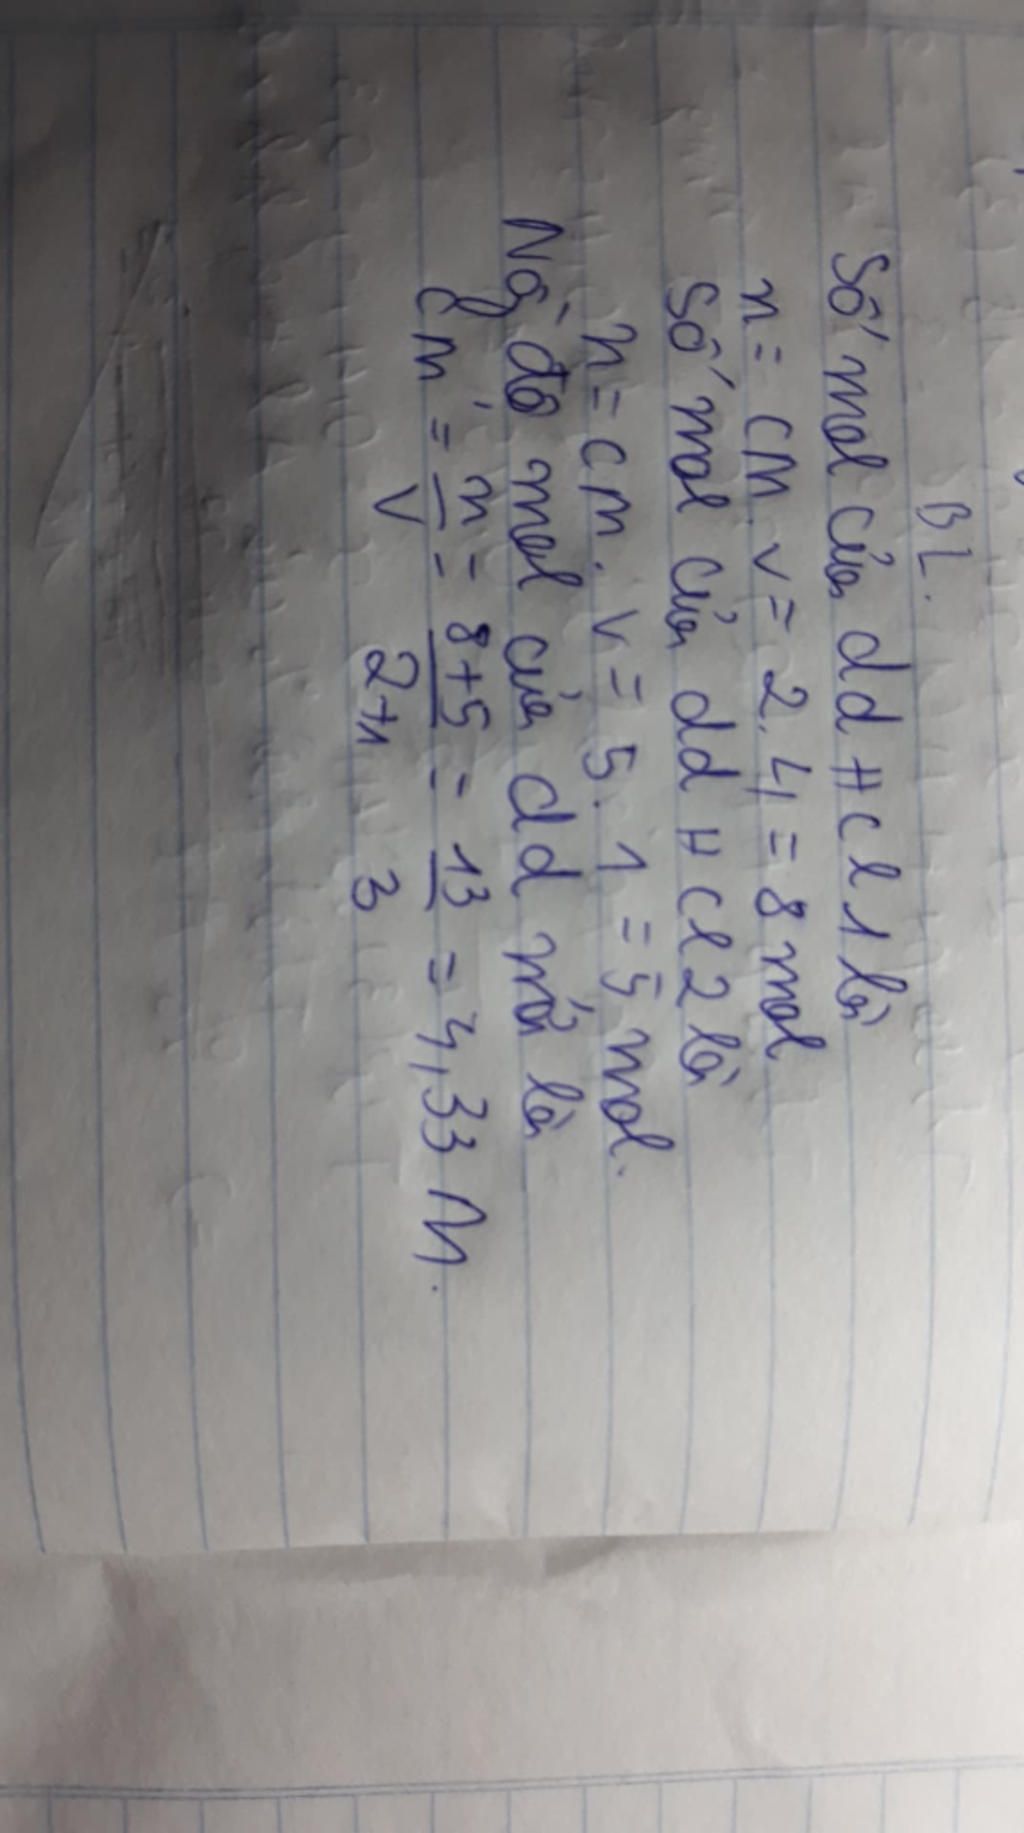 BL.
Số mol của dd HCl 1 là
n = CM. V = 2. 4 = 8 mol
Số mol của dd HCl 2 là
n = CM. V = 5. 1 = 5 mol.
Nồng độ mol của dd mới là
CM = n/V = 8+5/2+1 = 13/3 = 4,33 M.